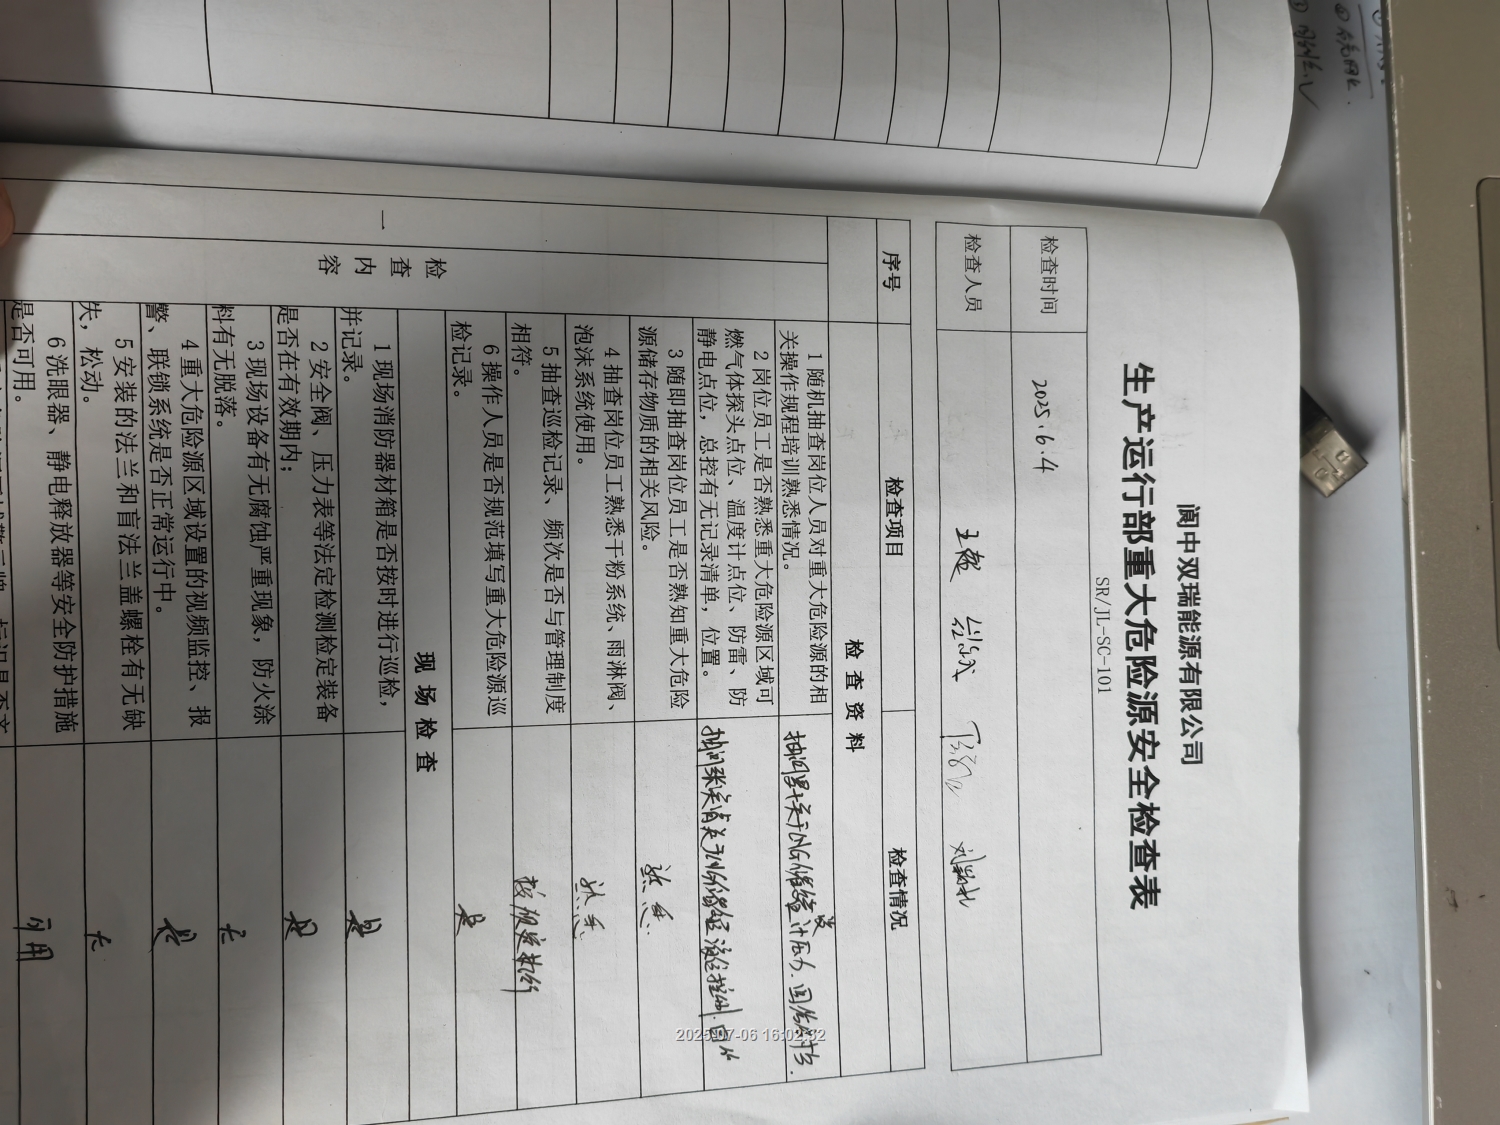 阆中双瑞能源有限公司
生产运行部重大危险源安全检查表
SR/JL-SC-101
检查时间 2025.6.4
检查人员
序号 检查项目 检查情况
检查资料
一 检查内容
1 随机抽查岗位人员对重大危险源的相
关操作规程培训熟悉情况。
2 岗位员工是否熟悉重大危险源区域可
燃气体探头点位、温度计点位、防雷、防
静电点位，总控有无记录清单，位置。
3 随即抽查岗位员工是否熟知重大危险
源储存物质的相关风险。
熟悉.
4 抽查岗位员工熟悉干粉系统、雨淋阀、
泡沫系统使用。
熟悉.
5 抽查巡检记录、频次是否与管理制度
相符。
按规定执行
6 操作人员是否规范填写重大危险源巡
检记录。
是
现场检查
1 现场消防器材箱是否按时进行巡检，
并记录。
是
2 安全阀、压力表等法定检测检定装备
是否在有效期内；
是
3 现场设备有无腐蚀严重现象，防火涂
料有无脱落。
无
4 重大危险源区域设置的视频监控、报
警、联锁系统是否正常运行中。
是
5 安装的法兰和盲法兰盖螺栓有无缺
失，松动。
无
6 洗眼器、静电释放器等安全防护措施
是否可用。
可用
2025-07-06 16:02:32